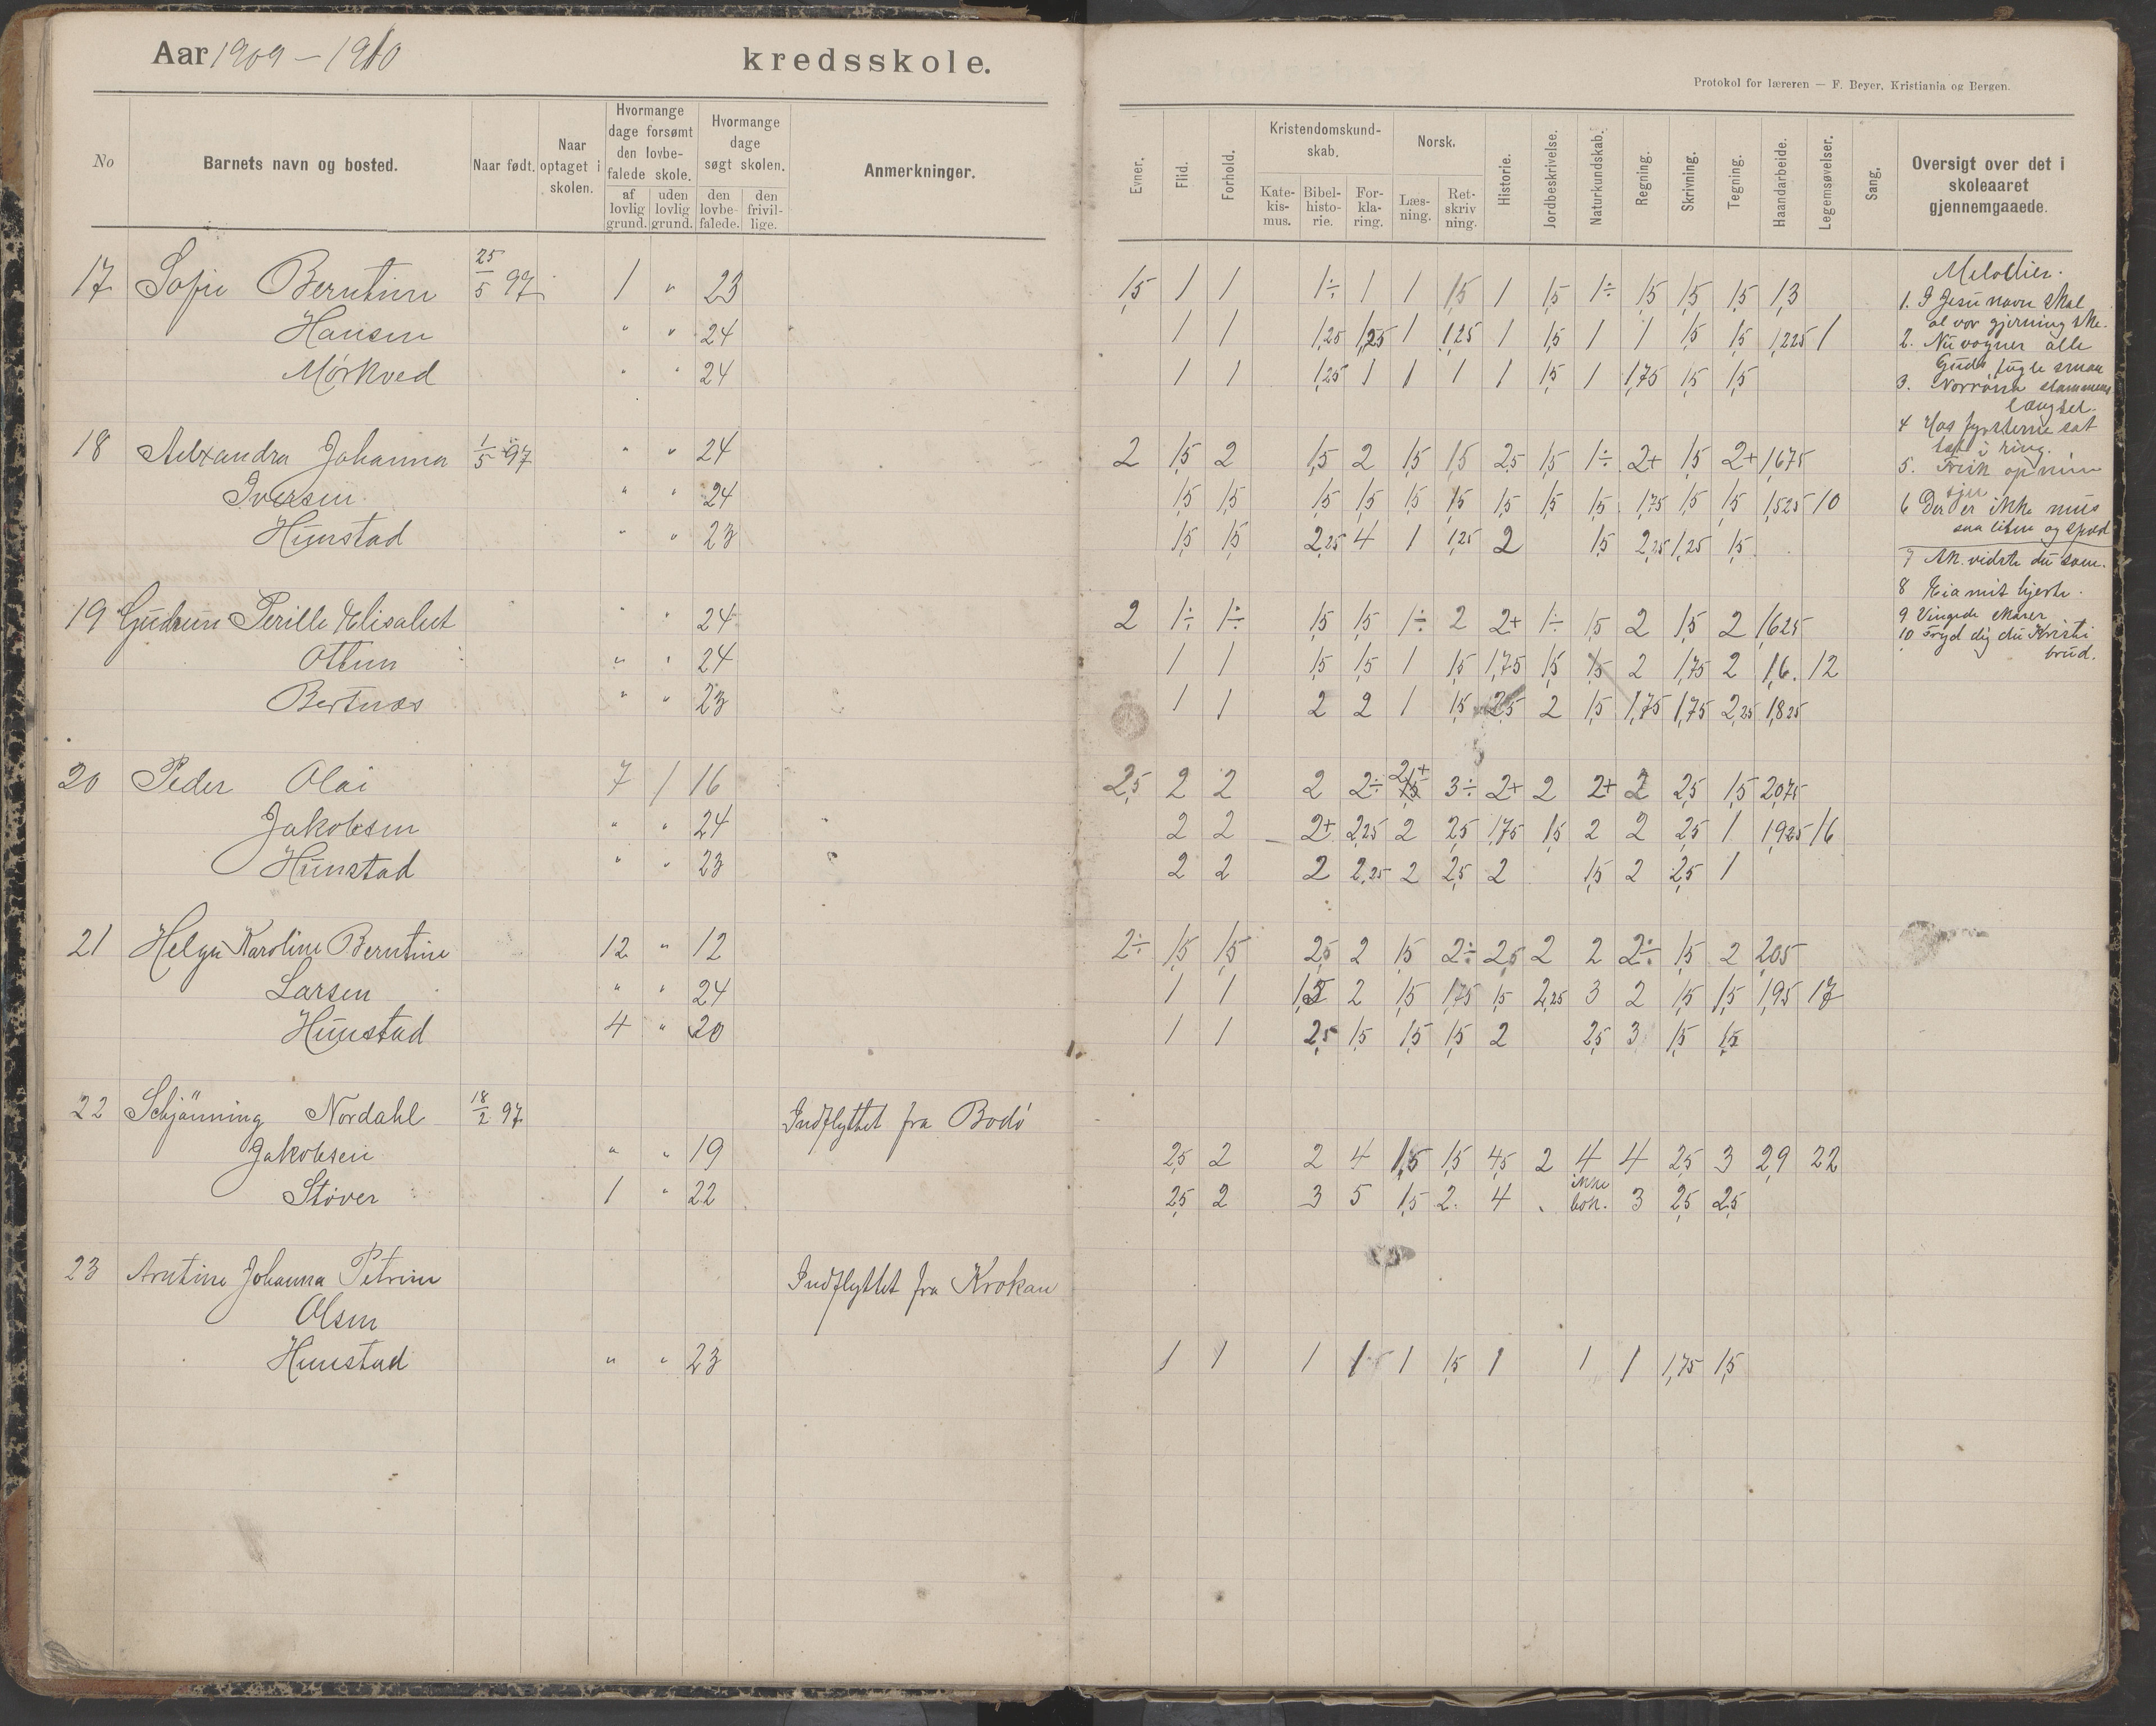 Aar 1909 – 1910 kredsskole.
Protokol for læreren — F. Beyer, Kristiania og Bergen.
No
Barnets navn og bosted.
Naar født.
Naar optaget i skolen.
Hvormange dage forsømt den lovbefalede skole.
af lovlig grund.
uden lovlig grund.
Hvormange dage søgt skolen.
den lovbefalede.
den frivillige.
Anmerkninger.
Evner.
Flid.
Forhold.
Kristendomskundskab.
Katekismus.
Bibelhistorie.
Forklaring.
Norsk.
Læsning.
Retskrivning.
Historie.
Jordbeskrivelse.
Naturkundskab.
Regning.
Skrivning.
Tegning.
Haandarbeide.
Legemsøvelser.
Sang.
Oversigt over det i skoleaaret gjennemgaaede.
17 Sofie Berntine 25/5 97 1 " 23 1,5 1 1 1÷ 1 1 1,5 1 1,5 1÷ 1,5 1,5 1,5 1,3
Hansen " " 24 1 1 1,25 1,25 1 1,25 1 1,5 1 1 1,5 1,5 1,225 1
Mørkved " " 24 1 1 1,25 1 1 1 1 1,5 1 1,75 1,5 1,5
18 Alexandra Johanna 1/5 97 " " 24 2 1,5 2 1,5 2 1,5 1,5 2,5 1,5 1÷ 2+ 1,5 2+ 1,675
Iversen " " 24 1,5 1,5 1,5 1,5 1,5 1,5 1,5 1,5 1,5 1,75 1,5 1,5 1,525 10
Hunstad " " 23 1,5 1,5 2,25 4 1 1,25 2 1,5 2,25 1,25 1,5
19 Gudrun Perille Elisabet " " 24 2 1÷ 1÷ 1,5 1,5 1÷ 2 2+ 1÷ 1,5 2 1,5 2 1,625
Otten " " 24 1 1 1,5 1,5 1 1,5 1,75 1,5 1,5 2 1,75 2 1,6. 12
Bertnæs " " 23 1 1 2 2 1 1,5 2,5 2 1,5 1,75 1,75 2,25 1,825
20 Peder Olai 7 1 16 2,5 2 2 2 2÷ 2+ 3÷ 2+ 2 2+ 2 2,5 1,5 2,075
Jakobsen " " 24 2 2 2+ 2,25 2 2,5 1,75 1,5 2 2 2,5 1 1,925 16
Hunstad " " 23 2 2 2 2,25 2 2,5 2 1,5 2 2,5 1
21 Helga Karoline Berntine 12 " 12 2÷ 1,5 1,5 2,5 2 1,5 2÷ 2,5 2 2 2÷ 1,5 2 2,05
Larsen " " 24 1 1 1,5 2 1,5 1,75 1,5 2,25 3 2 1,5 1,5 1,95 17
Hunstad 4 " 20 1 1 2,5 1,5 1,5 1,5 2 2,5 3 1,5 1,5
22 Schjänning Nordahl 18/2 97 Indflyttet fra Bodø
Jakobsen " " 19 2,5 2 2 4 1,5 1,5 4,5 2 4 4 2,5 3 2,9 22
Støver 1 " 22 2,5 2 3 5 1,5 2. 4 ikke bok. 3 2,5 2,5
23 Arntine Johanna Petrine Indflyttet fra Krokan
Olsen
Hunstad " " 23 1 1 1 1 1 1,5 1 1 1 1,75 1,5
Melodier.
1. I Jesu navn skal
al vor gjerning ske.
2. Nu vogner alle
Guds fugle smaa
3. Norrøna stammens
længsel.
4 Hos
tæt i ring.
5. Frisk op min
sjæl
6 Der er ikke mus
saa liten og spæd
7 Ak. vidste du som.
8 Eia mit hjerte.
9 Vingede skarer
10 Fryd dig du Kristi
brud.